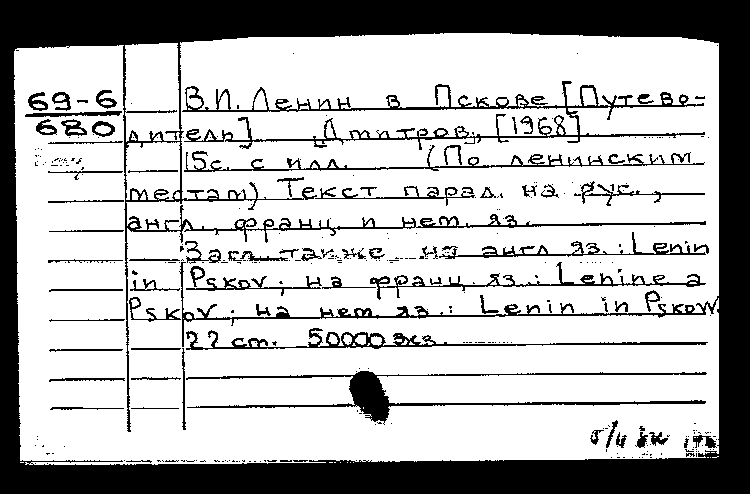 69-6
680
В.И. Ленин в Пскове [Путево-
дитель]. [Дмитров, [1968].
15с. с илл. (По ленинским
местам). Текст парал. на рус.,
англ., франц. и нем. яз.
Загл. также на англ яз.: Lenin
in Pskov; на франц. яз.: Lenine a
Pskov; на нем. яз.: Lenin in Pskow.
22 cm. 50000 экз.